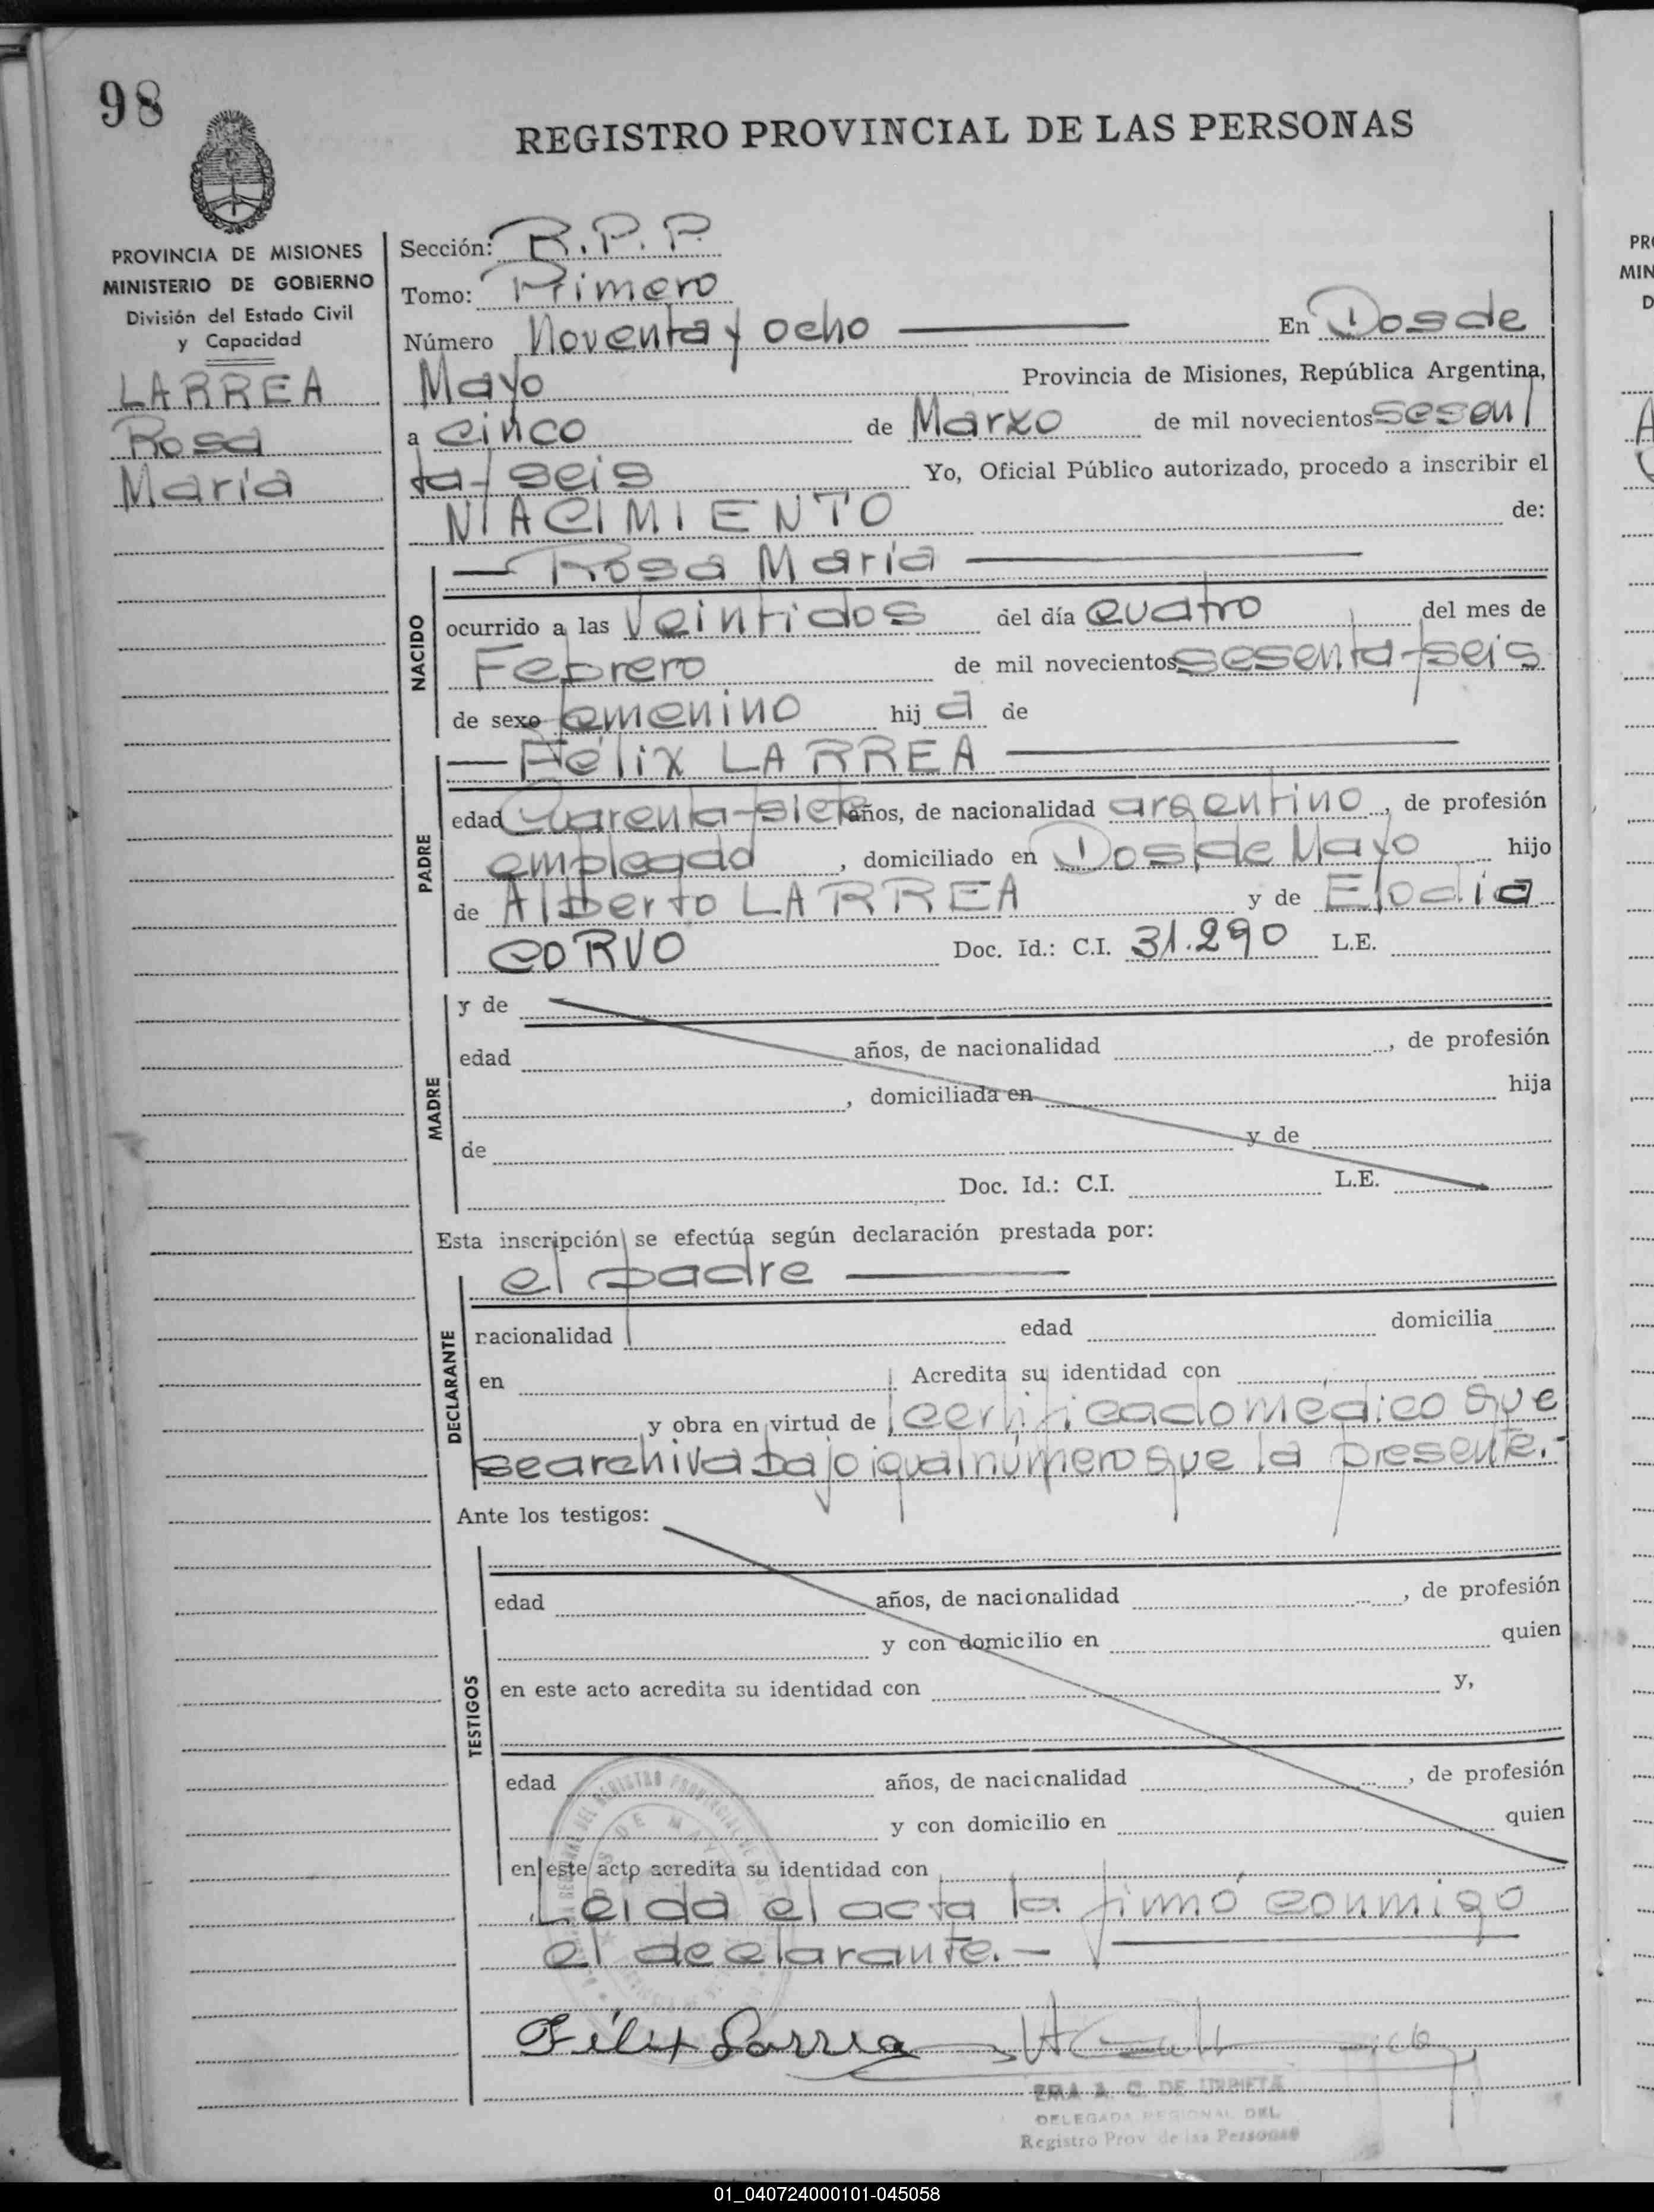 98
REGISTRO PROVINCIAL DE LAS PERSONAS
PROVINCIA DE MISIONES
MINISTERIO DE GOBIERNO
División del Estado Civil
y Capacidad
LARREA
Rosa
María
Sección: R.P.P.
Tomo: Primero
Número Noventa y ocho En Dos de
Mayo Provincia de Misiones, República Argentina,
a cinco de Marzo de mil novecientos sesen
ta y seis Yo, Oficial Público autorizado, procedo a inscribir el
NACIMIENTO de:
Rosa María
NACIDO
ocurrido a las Veintidos del día cuatro del mes de
Febrero de mil novecientos sesenta y seis
de sexo femenino hij a de
Félix LARREA
PADRE
edad Cuarenta y siete años, de nacionalidad argentino, de profesión
empleado, domiciliado en Dos de Mayo hijo
de Alberto LARREA y de Elodia
CORVO Doc. Id.: C.I. 31.290 L.E.
MADRE
y de
edad años, de nacionalidad , de profesión
, domiciliada en hija
de y de
Doc. Id.: C.I. L.E.
Esta inscripción se efectúa según declaración prestada por:
el padre
DECLARANTE
nacionalidad edad domicilia
en Acredita su identidad con
y obra en virtud de certificado médico que
se archiva bajo igual número que la presente.-
Ante los testigos:
TESTIGOS
edad años, de nacionalidad , de profesión
y con domicilio en quien
en este acto acredita su identidad con y,
edad años, de nacionalidad , de profesión
y con domicilio en quien
en este acto acredita su identidad con
Leida el acta la firmó conmigo
el declarante.-
Félix Larrea
DE URRIETA
DELEGADA REGIONAL DEL
Registro Prov de las Personas
01_040724000101-045058